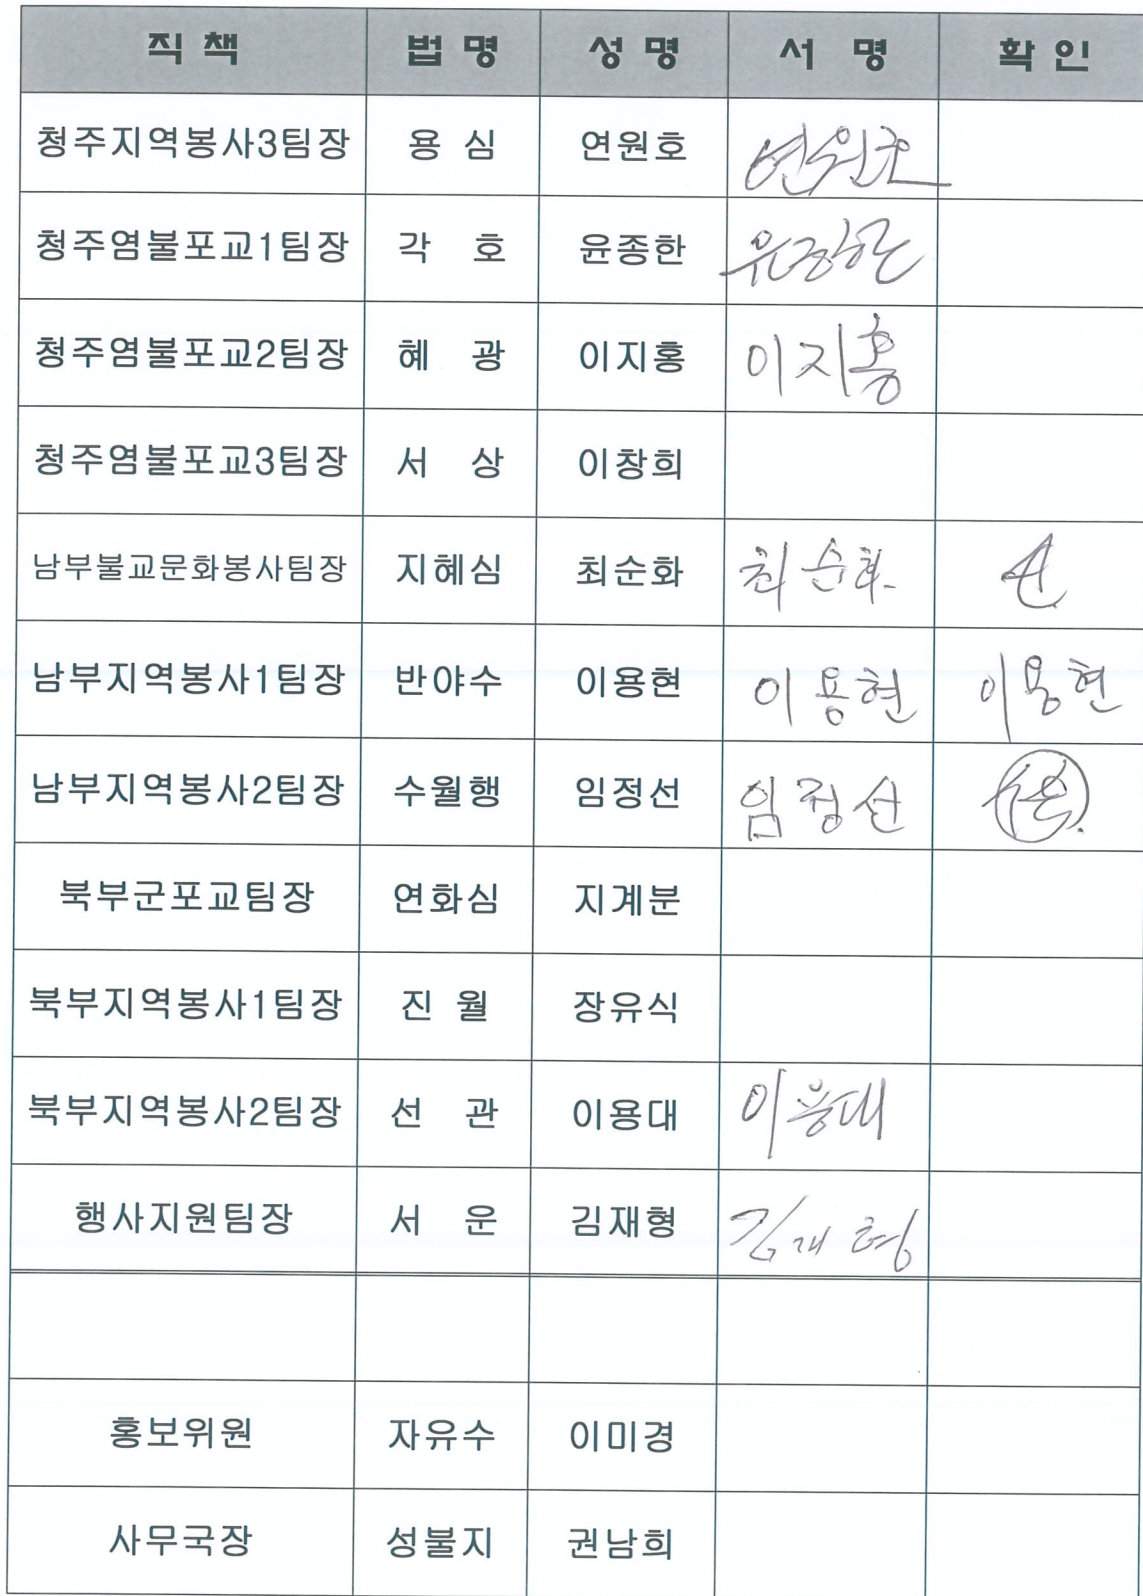 직 책 법 명 성 명 서 명 확 인
청주지역봉사3팀장 용 심 연원호 연원호
청주염불포교1팀장 각 호 윤종한 윤종한
청주염불포교2팀장 혜 광 이지홍 이지홍
청주염불포교3팀장 서 상 이창희
남부불교문화봉사팀장 지혜심 최순화 최순화
남부지역봉사1팀장 반야수 이용현 이용현 이용현
남부지역봉사2팀장 수월행 임정선 임정선
북부군포교팀장 연화심 지계분
북부지역봉사1팀장 진 월 장유식
북부지역봉사2팀장 선 관 이용대 이용대
행사지원팀장 서 운 김재형 김재형
홍보위원 자유수 이미경
사무국장 성불지 권남희